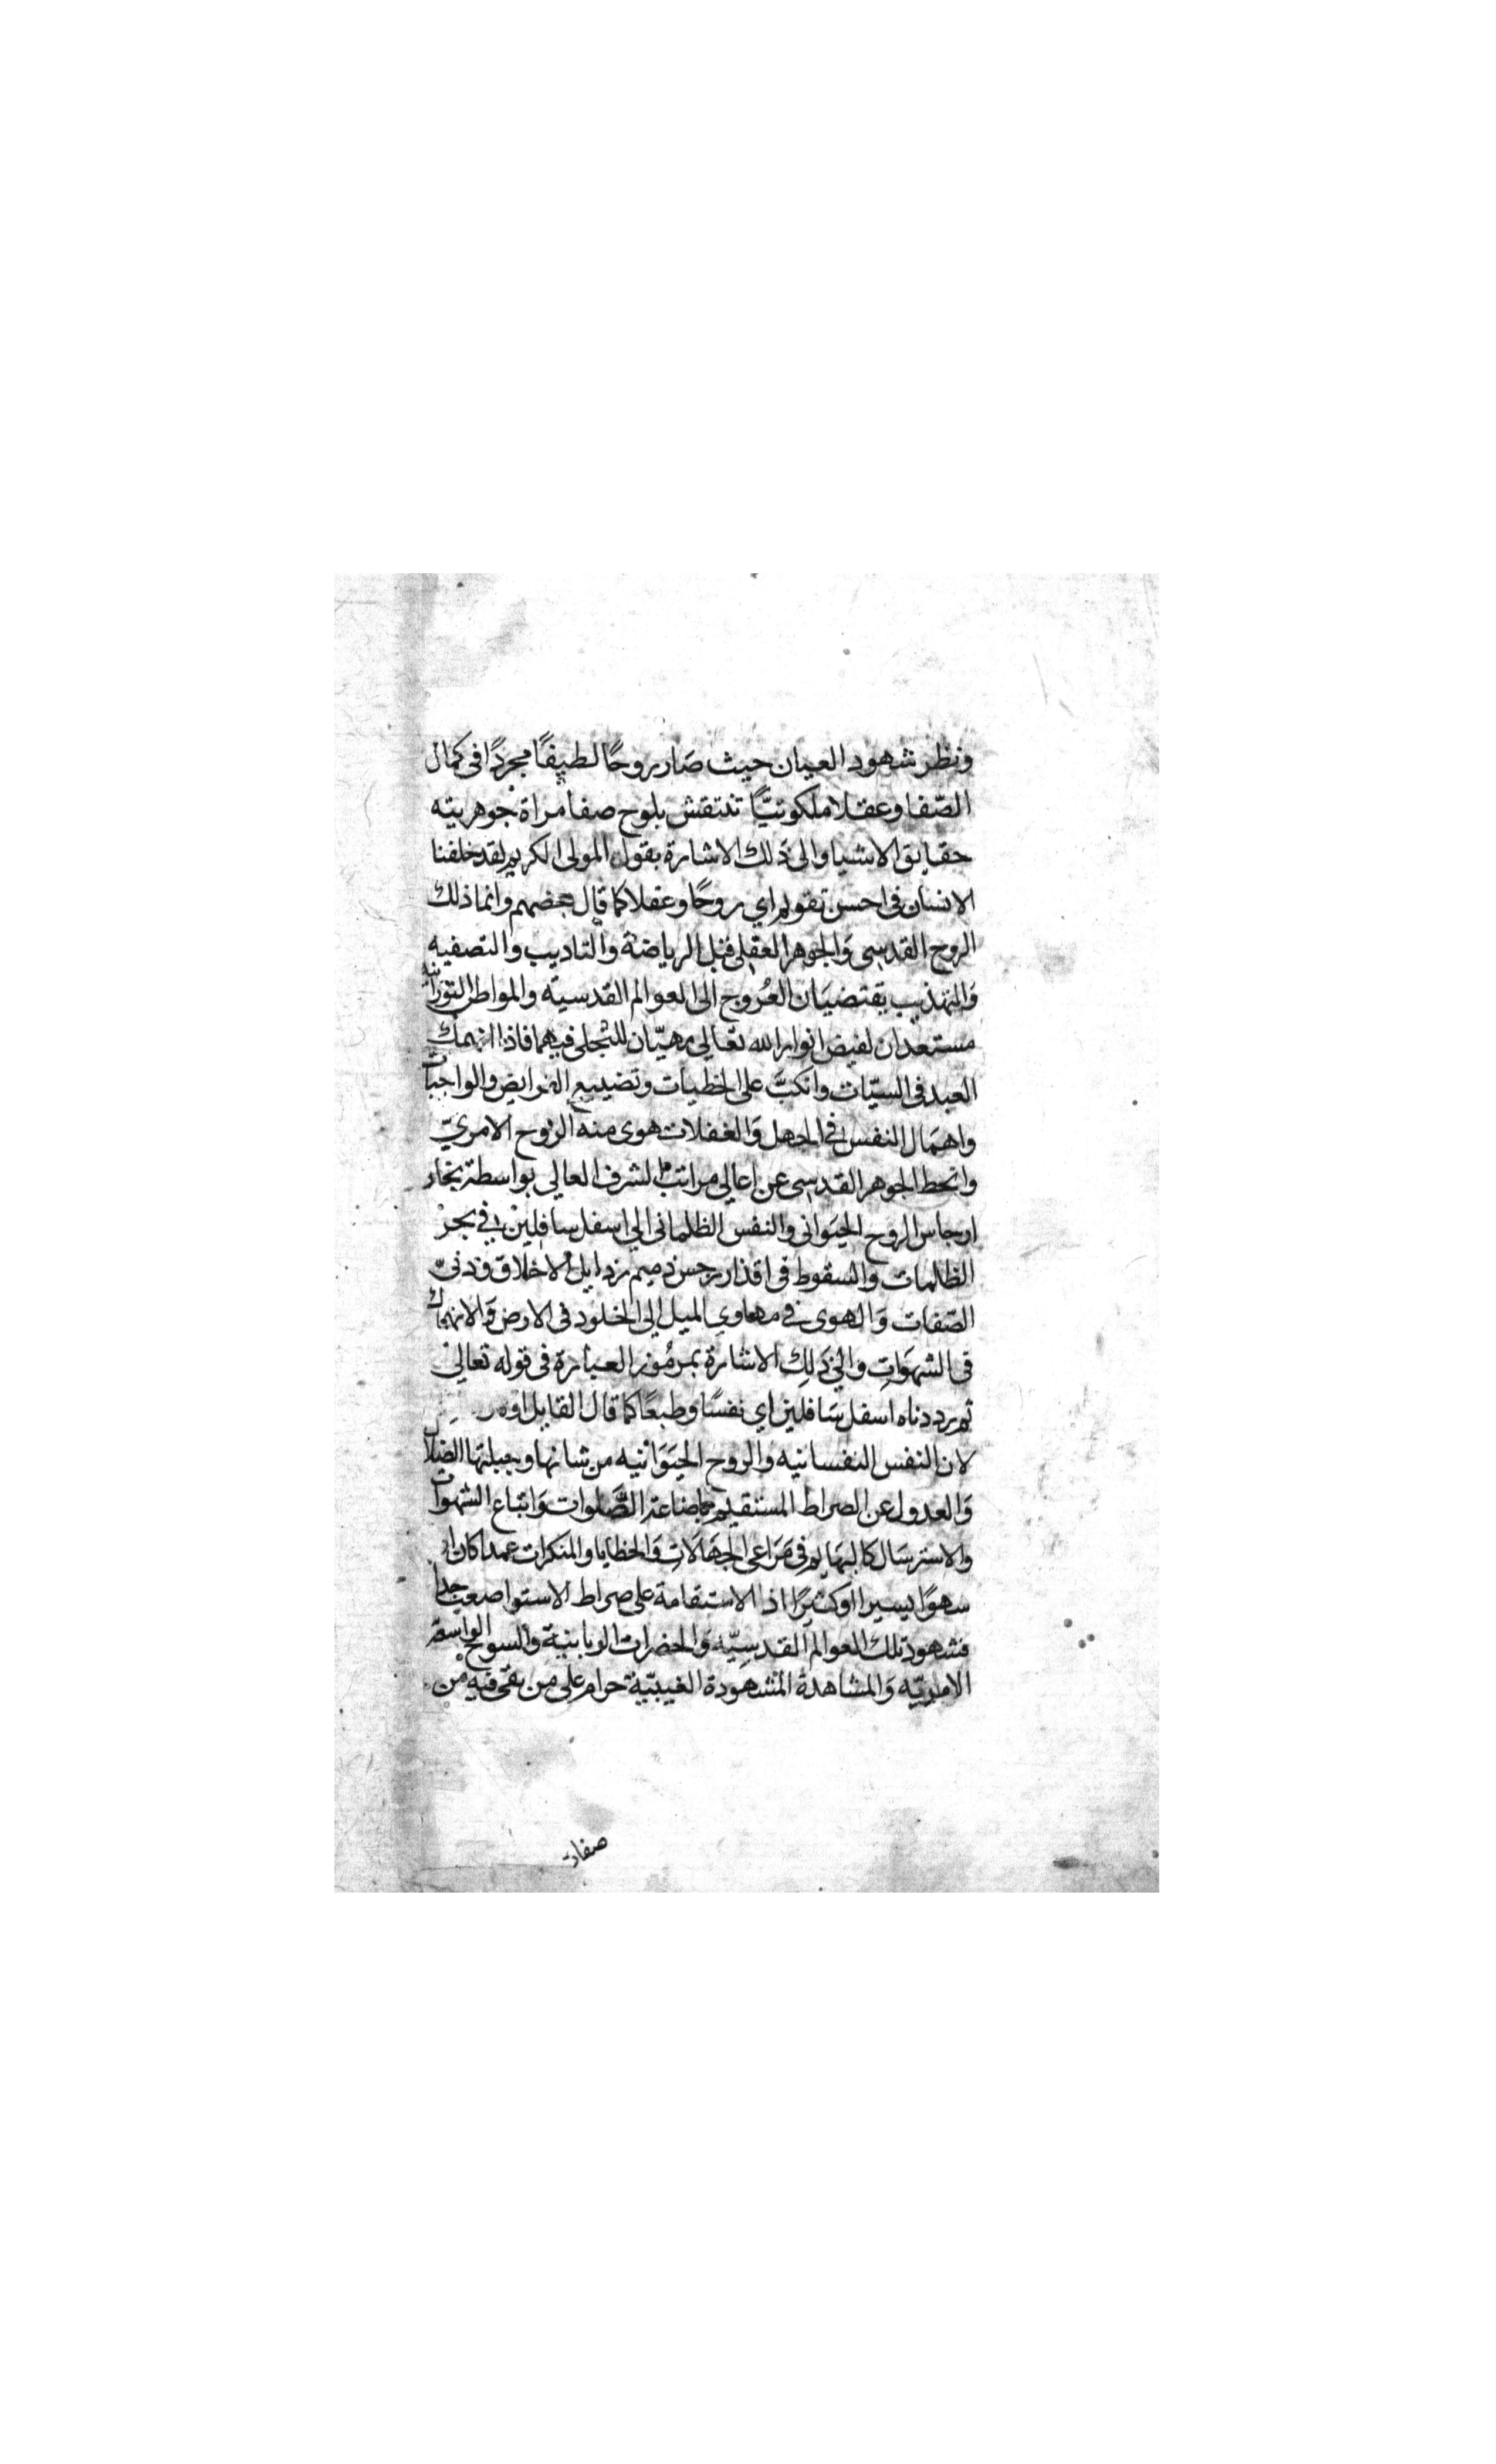 ونظر شهود العيان حيث صار روحًا لطيفًا مجردًا في كمال
الصّفا وعقلا ملكوتيًّا تنتقش بلوح صفا مراة جوهريته
حقايق الاشيا والى ذلك الاشارة بقول المولى الكريم لقد خلقنا
الانسان في احسن تقويم اي روحًا وعقلا كما قال بعضهم وانما ذلك
الروح القدسي والجوهر العقلي قبل الرياضة والتاديب والتصفيه
والتهذيب يقتضيان العُروج الى العوالم القدسية والمواطن النورانية
مستعدان لفيض انوار الله تعالى مهيّان للتجلى فيهما فاذا انهمك
العبد في السيّات وانكبّ على الخطيات وتضييع الفرايض والواجبات
واهمال النفس في الجهل والغفلات هوى منه الروح الامريّ
وانحط الجوهر القدسي عن اعالي مراتب الشرف العالي بواسطة بخار
ارجاس الروح الحيَواني والنفس الظلماني الي اسفل سافلين في بحر
الظلمات والسقوط في اقذار رجس ذميم رذايل الاخلاق ودنيّ
الصّفات وَالهوى في مهاوي الميل الى الخلود في الارض وَالانهماك
في الشهوَاتِ والي ذَلِك الاشارة بمرمُوز العبارة في قوله تعالى
ثم رددناه اسفل سَافلين اي نفسًا وطبعًا كما قال القايل اوه
لان النفس النفسانيه والروح الحيَوَانيه من شانها وجبلتها الضلال
وَالعدول عن الصراط المستقيم باضاعة الصَّلوات وَاتباع الشهوات
والاسترسَال كالبهَايم في مَرَاعي الجهَالاتِ وَالخطايا والمنكرات عمدا كان او
سهوًا يسيرا او كثيرًا اذ الاستقامة على صراط الاستوا صعب جدا
فشهود تلك العوالم القدسِيّه وَالحضرات الربانية والسوح الواسعة
الامريّه وَالمشاهدة المشهودة الغيبيّة حرام على من بقي فيه من
صفات